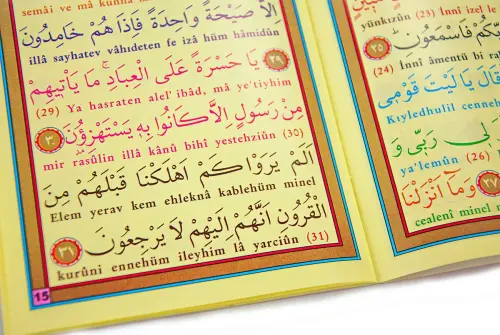 yünkızûn (23) İnnî izel le
بِّكُمْ فَاسْمَعُونِ ٢٥
(24) İnnî âmentü bi rab
قَالَ يَا لَيْتَ قَوْمِى
Kıyledhulil cenne
لِى رَبِّى وَ
ya'lemun (26)
٢٧ وَمَا اَنْزَلْنَا
cealenî minel
semâi ve mâ
اِلاَّ صَيْحَةً وَاحِدَةً فَاِذَا هُمْ خَامِدُونَ
illâ sayhatev vâhıdeten fe izâ hüm hâmidûn
٢٩ يَا حَسْرَةً عَلَى الْعِبَادِ مَا يَأْتِيهِمْ
(29) Ya hasraten alel' ibâd, mâ ye'tiyhim
مِنْ رَسُولٍ اِلاَّ كَانُوا بِهِ يَسْتَهْزِؤُنَ ٣٠
mir rasûlin illâ kânû bihî yestehziûn (30)
اَلَمْ يَرَوْا كَمْ اَهْلَكْنَا قَبْلَهُمْ مِنَ
Elem yerav kem ehleknâ kablehüm minel
الْقُرُونِ اَنَّهُمْ اِلَيْهِمْ لاَ يَرْجِعُونَ ٣١
kurûni ennehüm ileyhim lâ yarciûn (31)
15